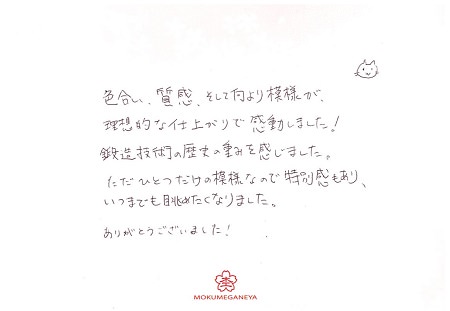 色合い、質感、そして何より模様が、
理想的な仕上がりで感動しました!
鍛造技術の歴史の重みを感じました。
ただひとつだけの模様なので特別感もあり、
いつまでも眺めたくなりました。
ありがとうございました!
MOKUMEGANEYA